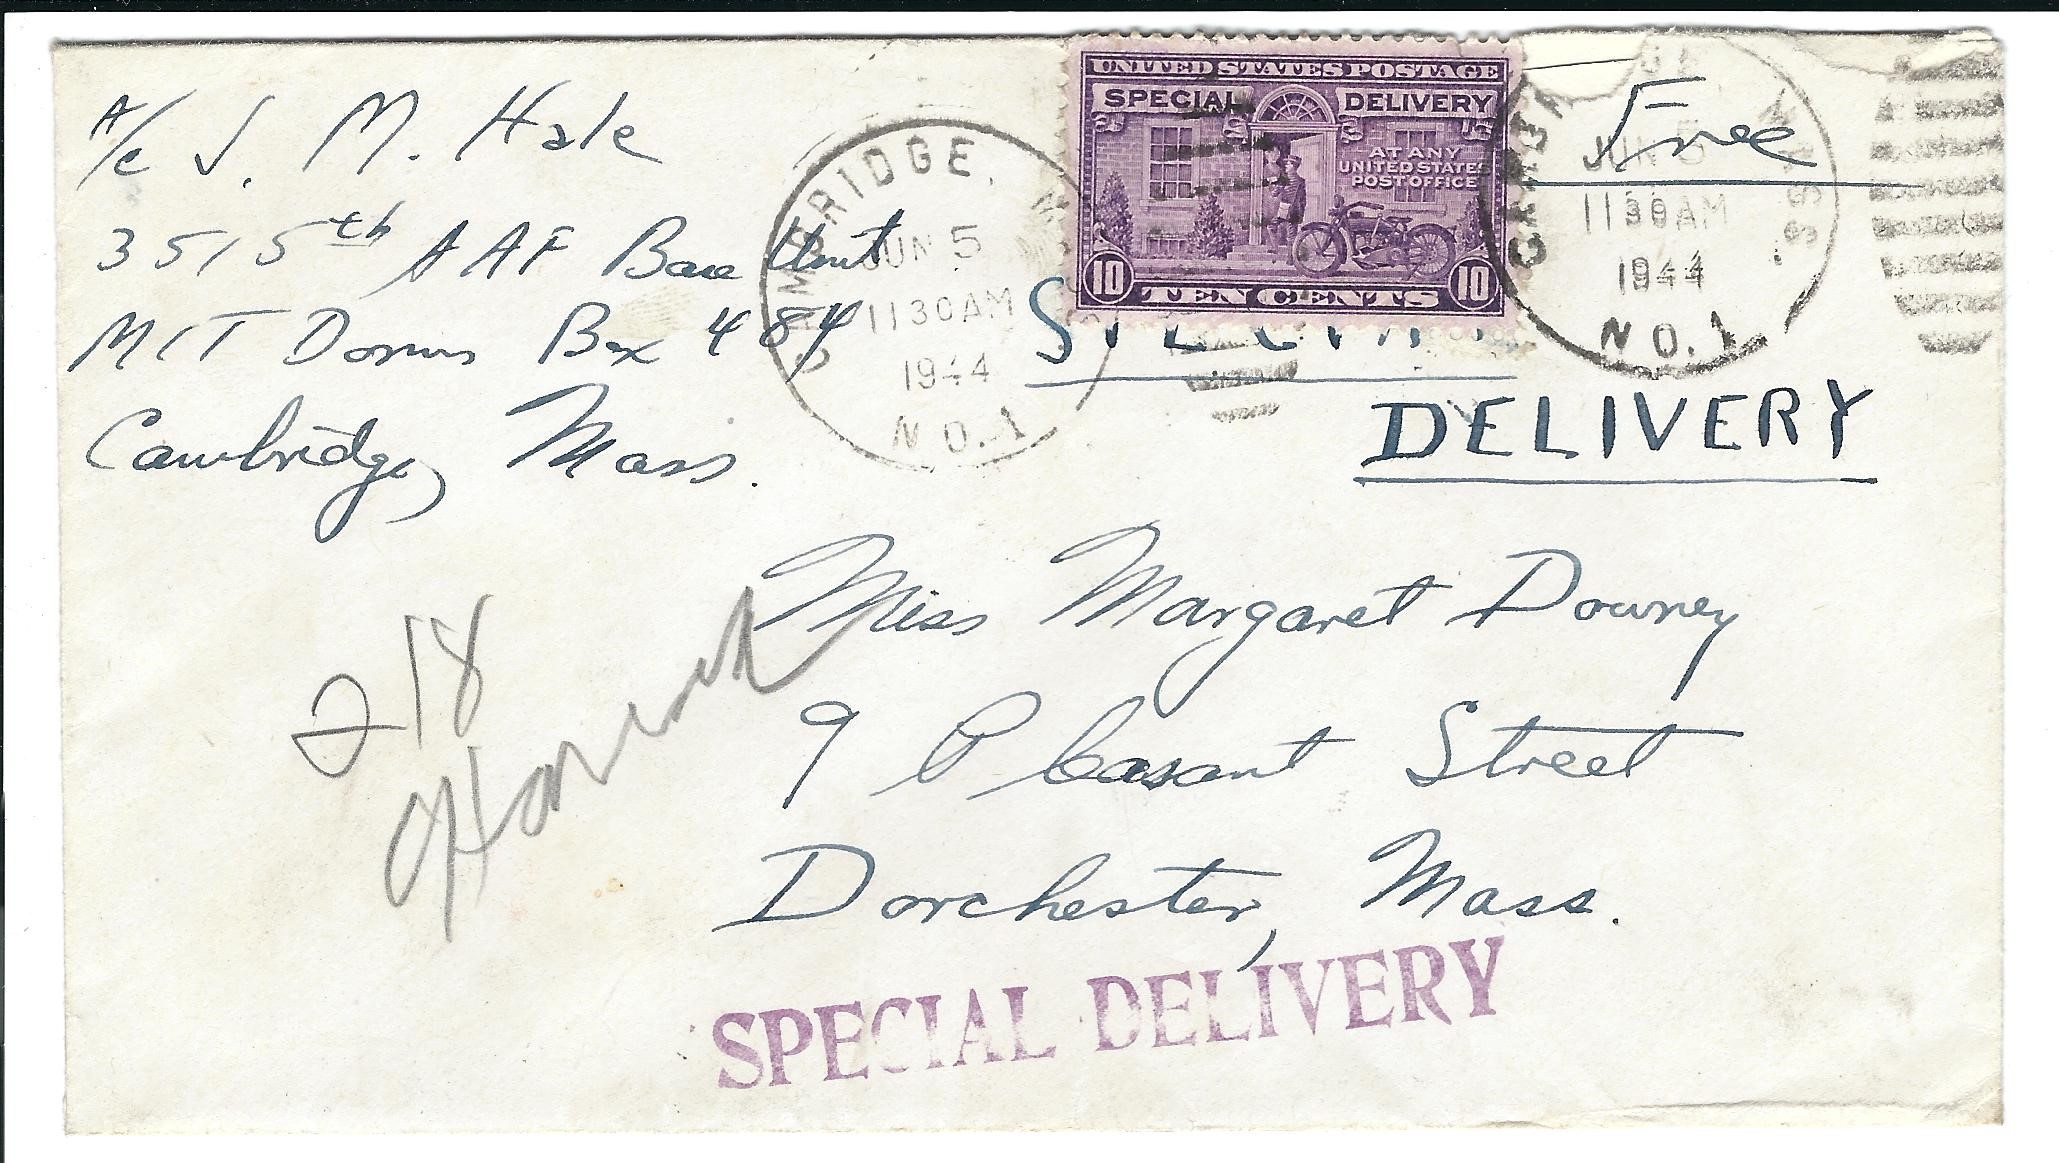 A/c J. M. Hale
3515th AAF Base Unit
MIT Dorms Box 484
Cambridge, Mass.
CAMBRIDGE, MASS.
JUN 5
1130AM
1944
NO. 1
UNITED STATES POSTAGE
SPECIAL DELIVERY
AT ANY
UNITED STATES
POST OFFICE
10 TEN CENTS 10
Free
CAMBRIDGE MASS.
JUN 5
1130AM
1944
NO. 1
SPECIAL
DELIVERY
Miss Margaret Downey
9 Pleasant Street
Dorchester, Mass.
218
SPECIAL DELIVERY